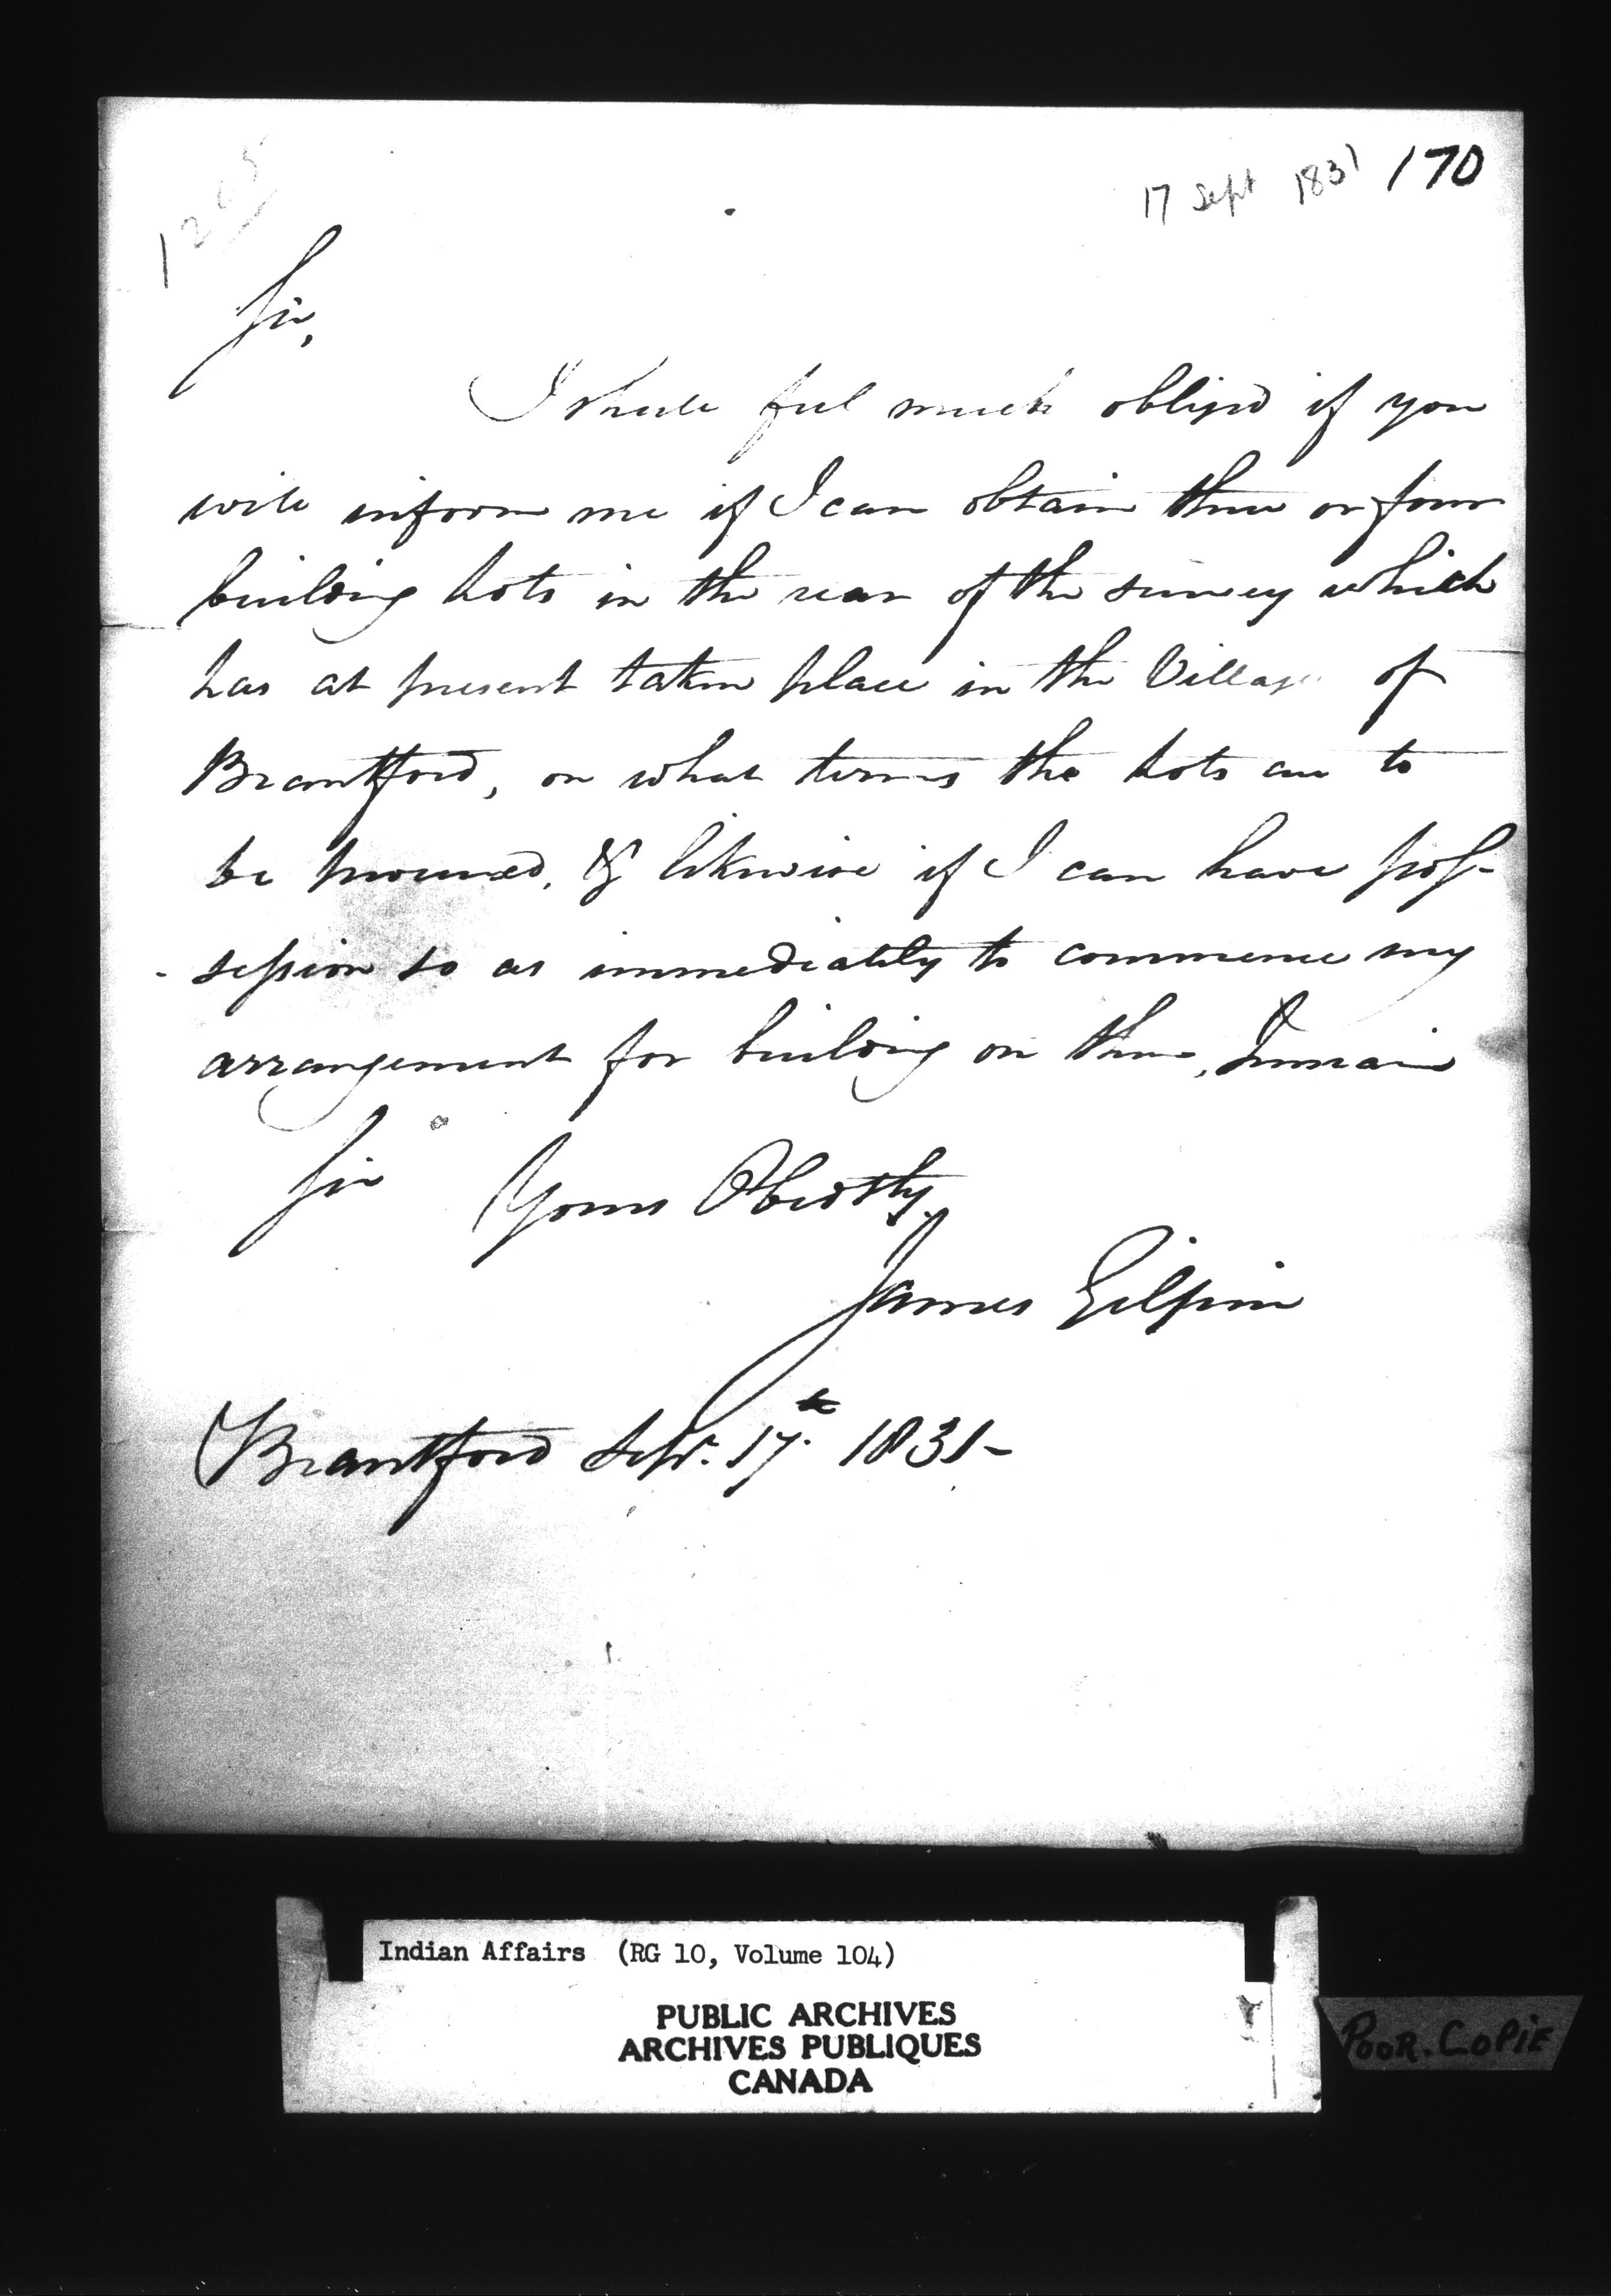 17 Sept 1831 170
1205
Sir,
I shall feel much obliged if you
will inform me if I can obtain three or four
building Lots in the rear of the survey which
has at present taken place in the Village of
Brantford, on what terms the Lots are to
be procured, & likewise if I can have pos-
-session so as immediately to commence my
arrangement for building on them, I remain
Sir Yours Obedtly.
James Gilpin
Brantford Sepr. 17th 1831-
Indian Affairs (RG 10, Volume 104)
PUBLIC ARCHIVES
ARCHIVES PUBLIQUES
CANADA
POOR. COPIE